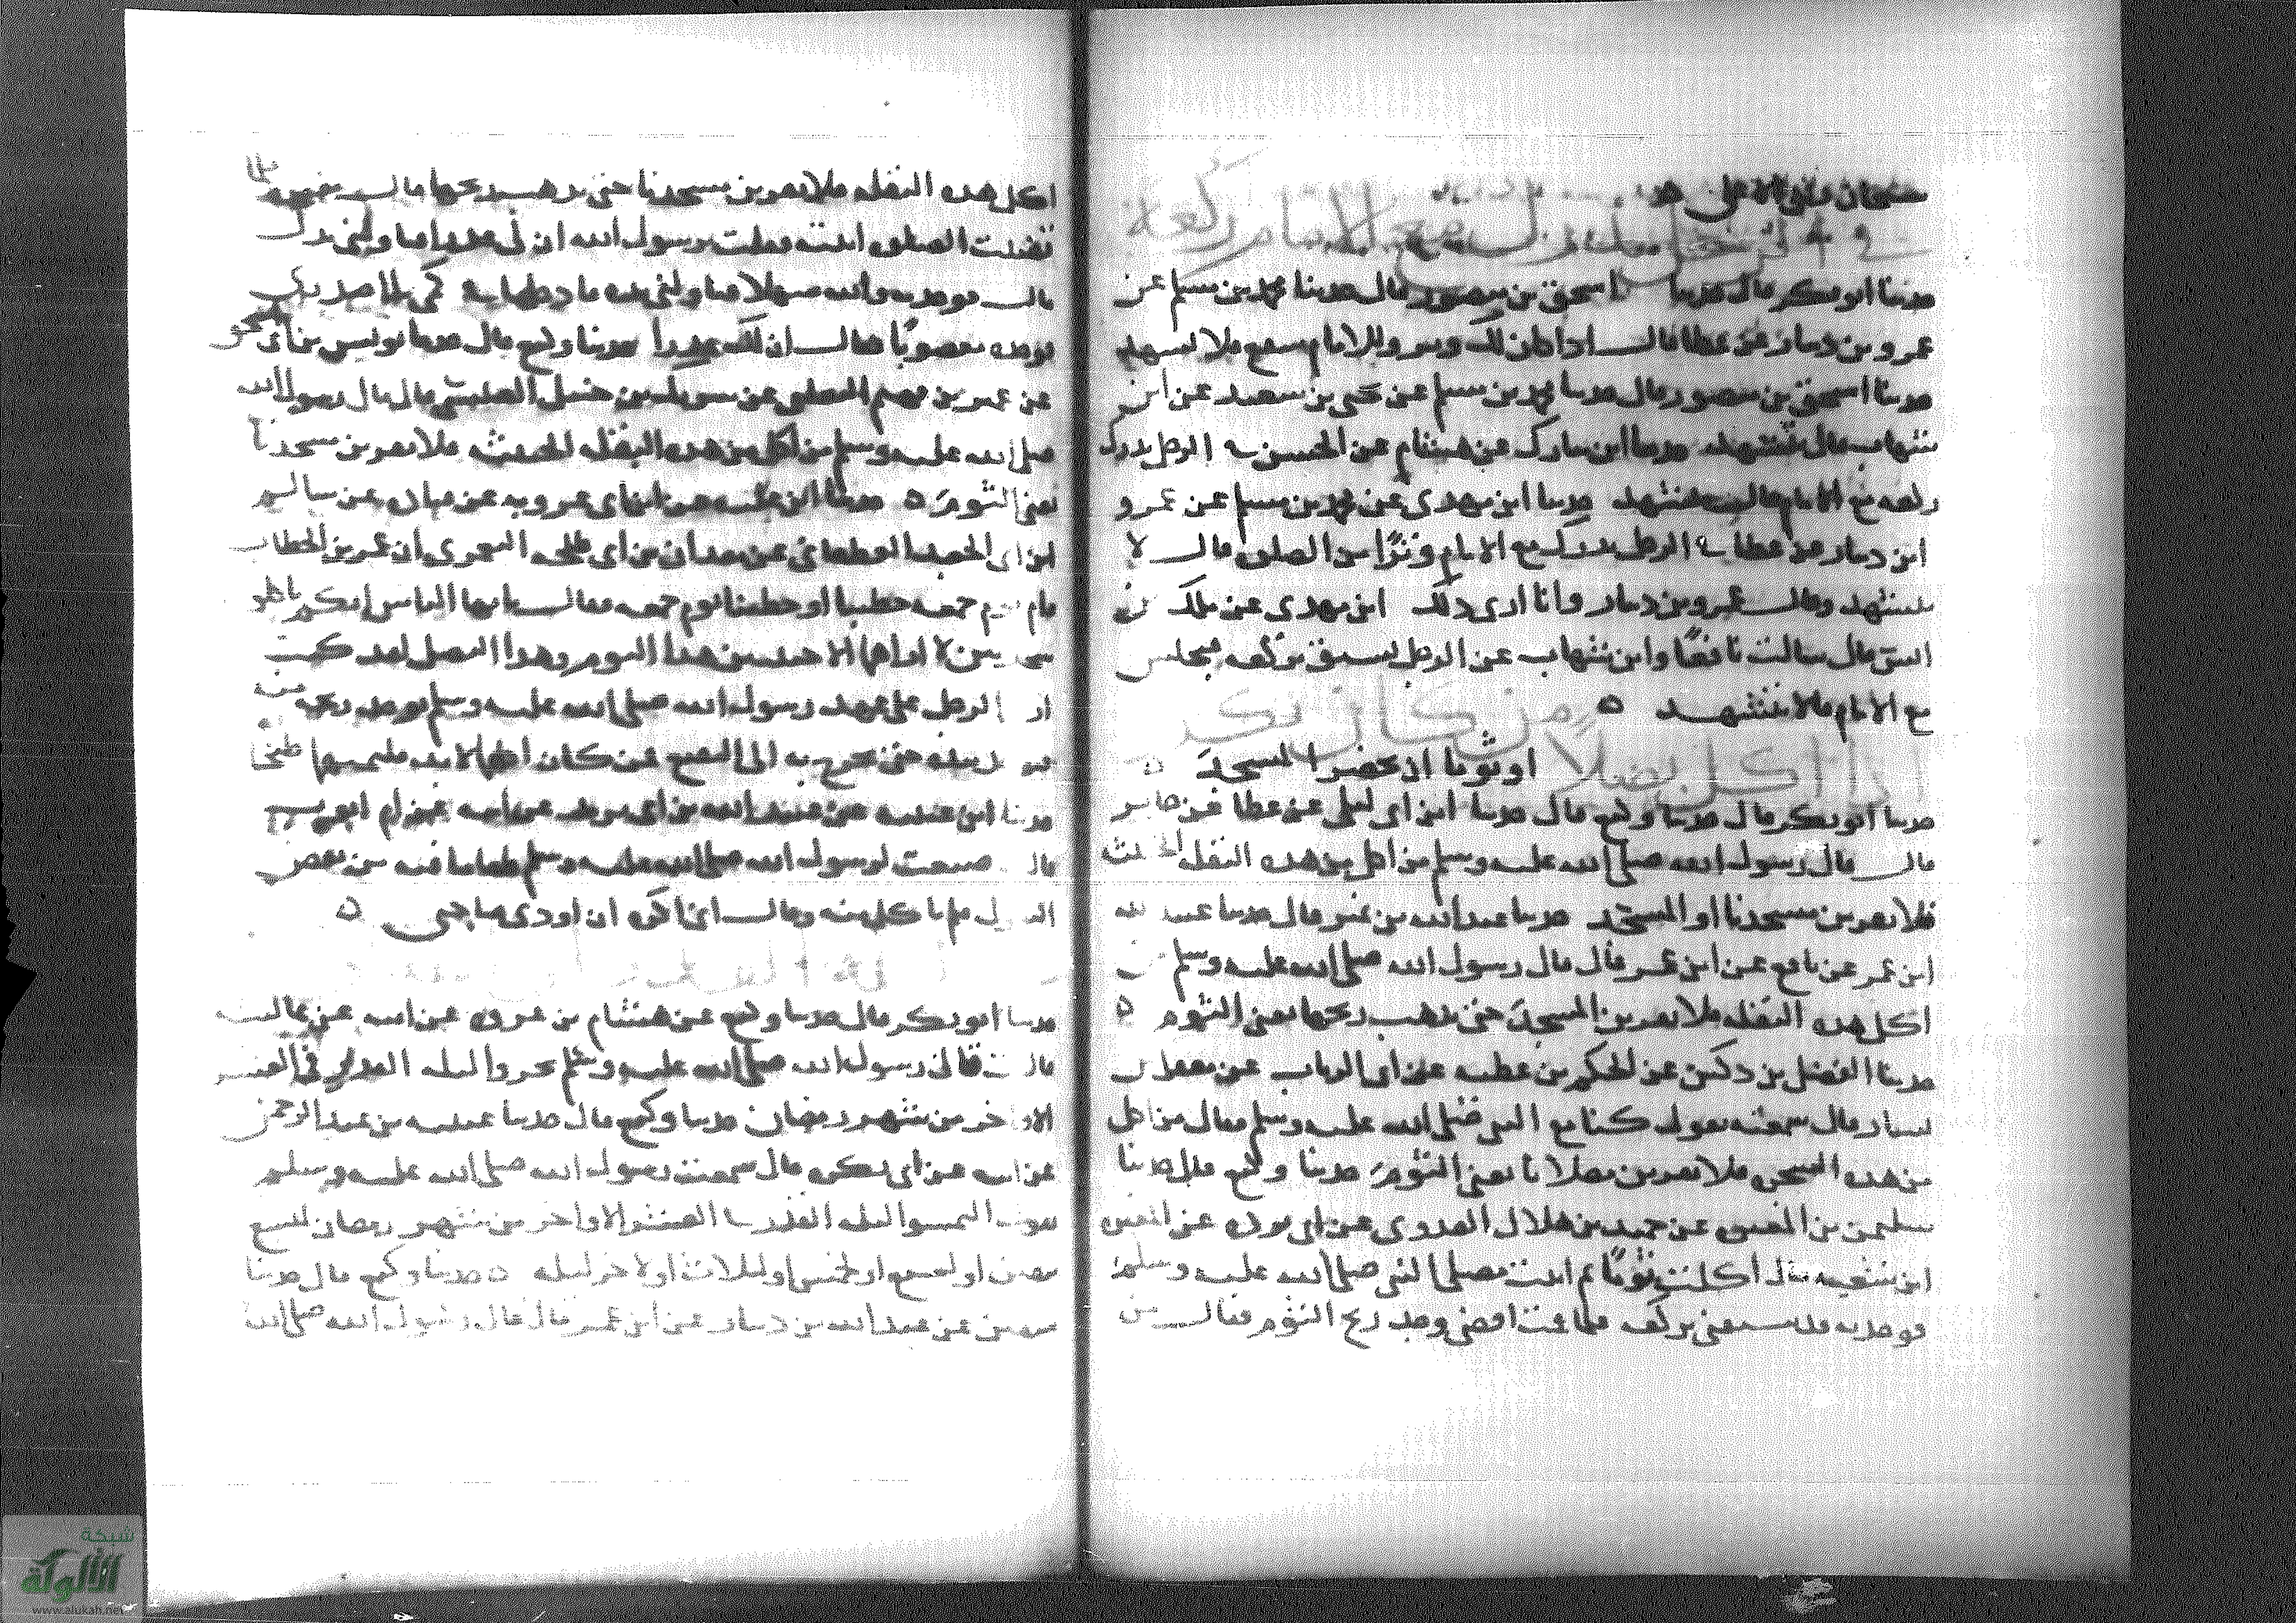 سبحان ربي الاعلى
في الرجل يدرك مع الامام ركعة
حدثنا ابو بكر قال حدثنا اسحق بن منصور قال حدثنا محمد بن مسلم عن
عمرو بن دينار عن عطا قال اذا كان لك وتر وللامام شفع فلا تشهد
حدثنا اسحق بن منصور قال حدثنا محمد بن مسلم عن يحيى بن سعيد عن ابن
شهاب قال يتشهد حدثنا ابن مبارك عن هشام عن الحسن في الرجل يدرك
ركعة مع الامام قال يتشهد حدثنا ابن مهدي عن محمد بن مسلم عن عمرو
ابن دينار عن عطا في الرجل يدرك مع الامام وترا من الصلوة قال لا
يتشهد وقال عمرو بن دينار وانا ارى ذلك ابن مهدي عن ملك بن
انس قال سالت نافعا وابن شهاب عن الرجل يسبق بركعة فيجلس
مع الامام قالا يتشهد ٥ من كان يكره
اذا اكل بصلا او ثوما ان يحضر المسجد ٥
حدثنا ابو بكر قال حدثنا وكيع قال حدثنا ابن ابي ليلى عن عطا عن جابر
قال قال رسول الله صلى الله عليه وسلم من اكل من هذه البقلة الخبيثة
فلا يقربن مسجدنا او المسجد حدثنا عبد الله بن نمير قال حدثنا عبيد الله
ابن عمر عن نافع عن ابن عمر قال قال رسول الله صلى الله عليه وسلم من
اكل هذه البقلة فلا يقربن المسجد حتى يذهب ريحها يعني الثوم ٥
حدثنا الفضل بن دكين عن الحكم بن عطية عن ابي الرباب عن معقل بن
يسار قال سمعته يقول كنا مع النبي صلى الله عليه وسلم فقال من اكل
من هذه الشجرة فلا يقربن مصلانا يعني الثوم حدثنا وكيع قال حدثنا
سليمن بن المغيرة عن حميد بن هلال العدوي عن ابي بردة عن المغيرة
ابن شعبة قال اكلت ثوما ثم اتيت مصلى النبي صلى الله عليه وسلم
فوجدته قد سبقني بركعة فلما قمت اقضي وجد ريح الثوم فقال من
اكل هذه البقلة فلا يقربن مسجدنا حتى يذهب ريحها قال مغيرة فلما
قضيت الصلوة اتيته فقلت يرسول الله ان لي عذرا فناولني يدك
قال فوجدته والله سهلا فناولني يده فادخلها في كمي الى صدري
فوجده معصوبا فقال ان لك عذرا حدثنا وكيع قال حدثنا يونس بن ابي اسحق
عن عمير بن قميم التغلبي عن شريك بن حنبل العبسي قال قال رسول الله
صلى الله عليه وسلم من اكل من هذه البقلة الخبيثة فلا يقربن مسجدنا
يعني الثوم ٥ حدثنا ابن علية عن ابن ابي عروبة عن قتادة عن سالم
ابن ابي الجعد الغطفاني عن معدان بن ابي طلحة اليعمري ان عمر بن الخطاب
قام يوم جمعة خطيبا او خطبنا يوم جمعة فقال يا ايها الناس انكم تاكلون
شجرتين لا اراهما الا خبيثتين هذا الثوم وهذا البصل لقد كنت
ارى الرجل على عهد رسول الله صلى الله عليه وسلم يوجد ريحه منه
فيوخذ بيده حتى يخرج به الى البقيع فمن كان اكلهما لا بد فليمتهما طبخا
حدثنا ابن عيينة عن عبيد الله بن ابي يزيد عن ابيه عن ام ايوب
قالت صنعت لرسول الله صلى الله عليه وسلم طعاما فيه من بعض
البقول فلم ياكل منه وقال اني اكره ان اوذي صاحبي ٥
حدثنا ابو بكر قال حدثنا وكيع عن هشام بن عروة عن ابيه عن عائشة
قالت قال رسول الله صلى الله عليه وسلم تحروا ليلة القدر في العشر
الاواخر من شهر رمضان حدثنا وكيع قال حدثنا عيينة بن عبد الرحمن
عن ابيه عن ابي بكرة قال سمعت رسول الله صلى الله عليه وسلم
يقول التمسوا ليلة القدر في العشر الاواخر من شهر رمضان لتسع
يبقين او لسبع او لخمس او لثلاث او لاخر ليلة ٥ حدثنا وكيع قال حدثنا
سفين عن عبد الله بن دينار عن ابن عمر قال قال رسول الله صلى الله